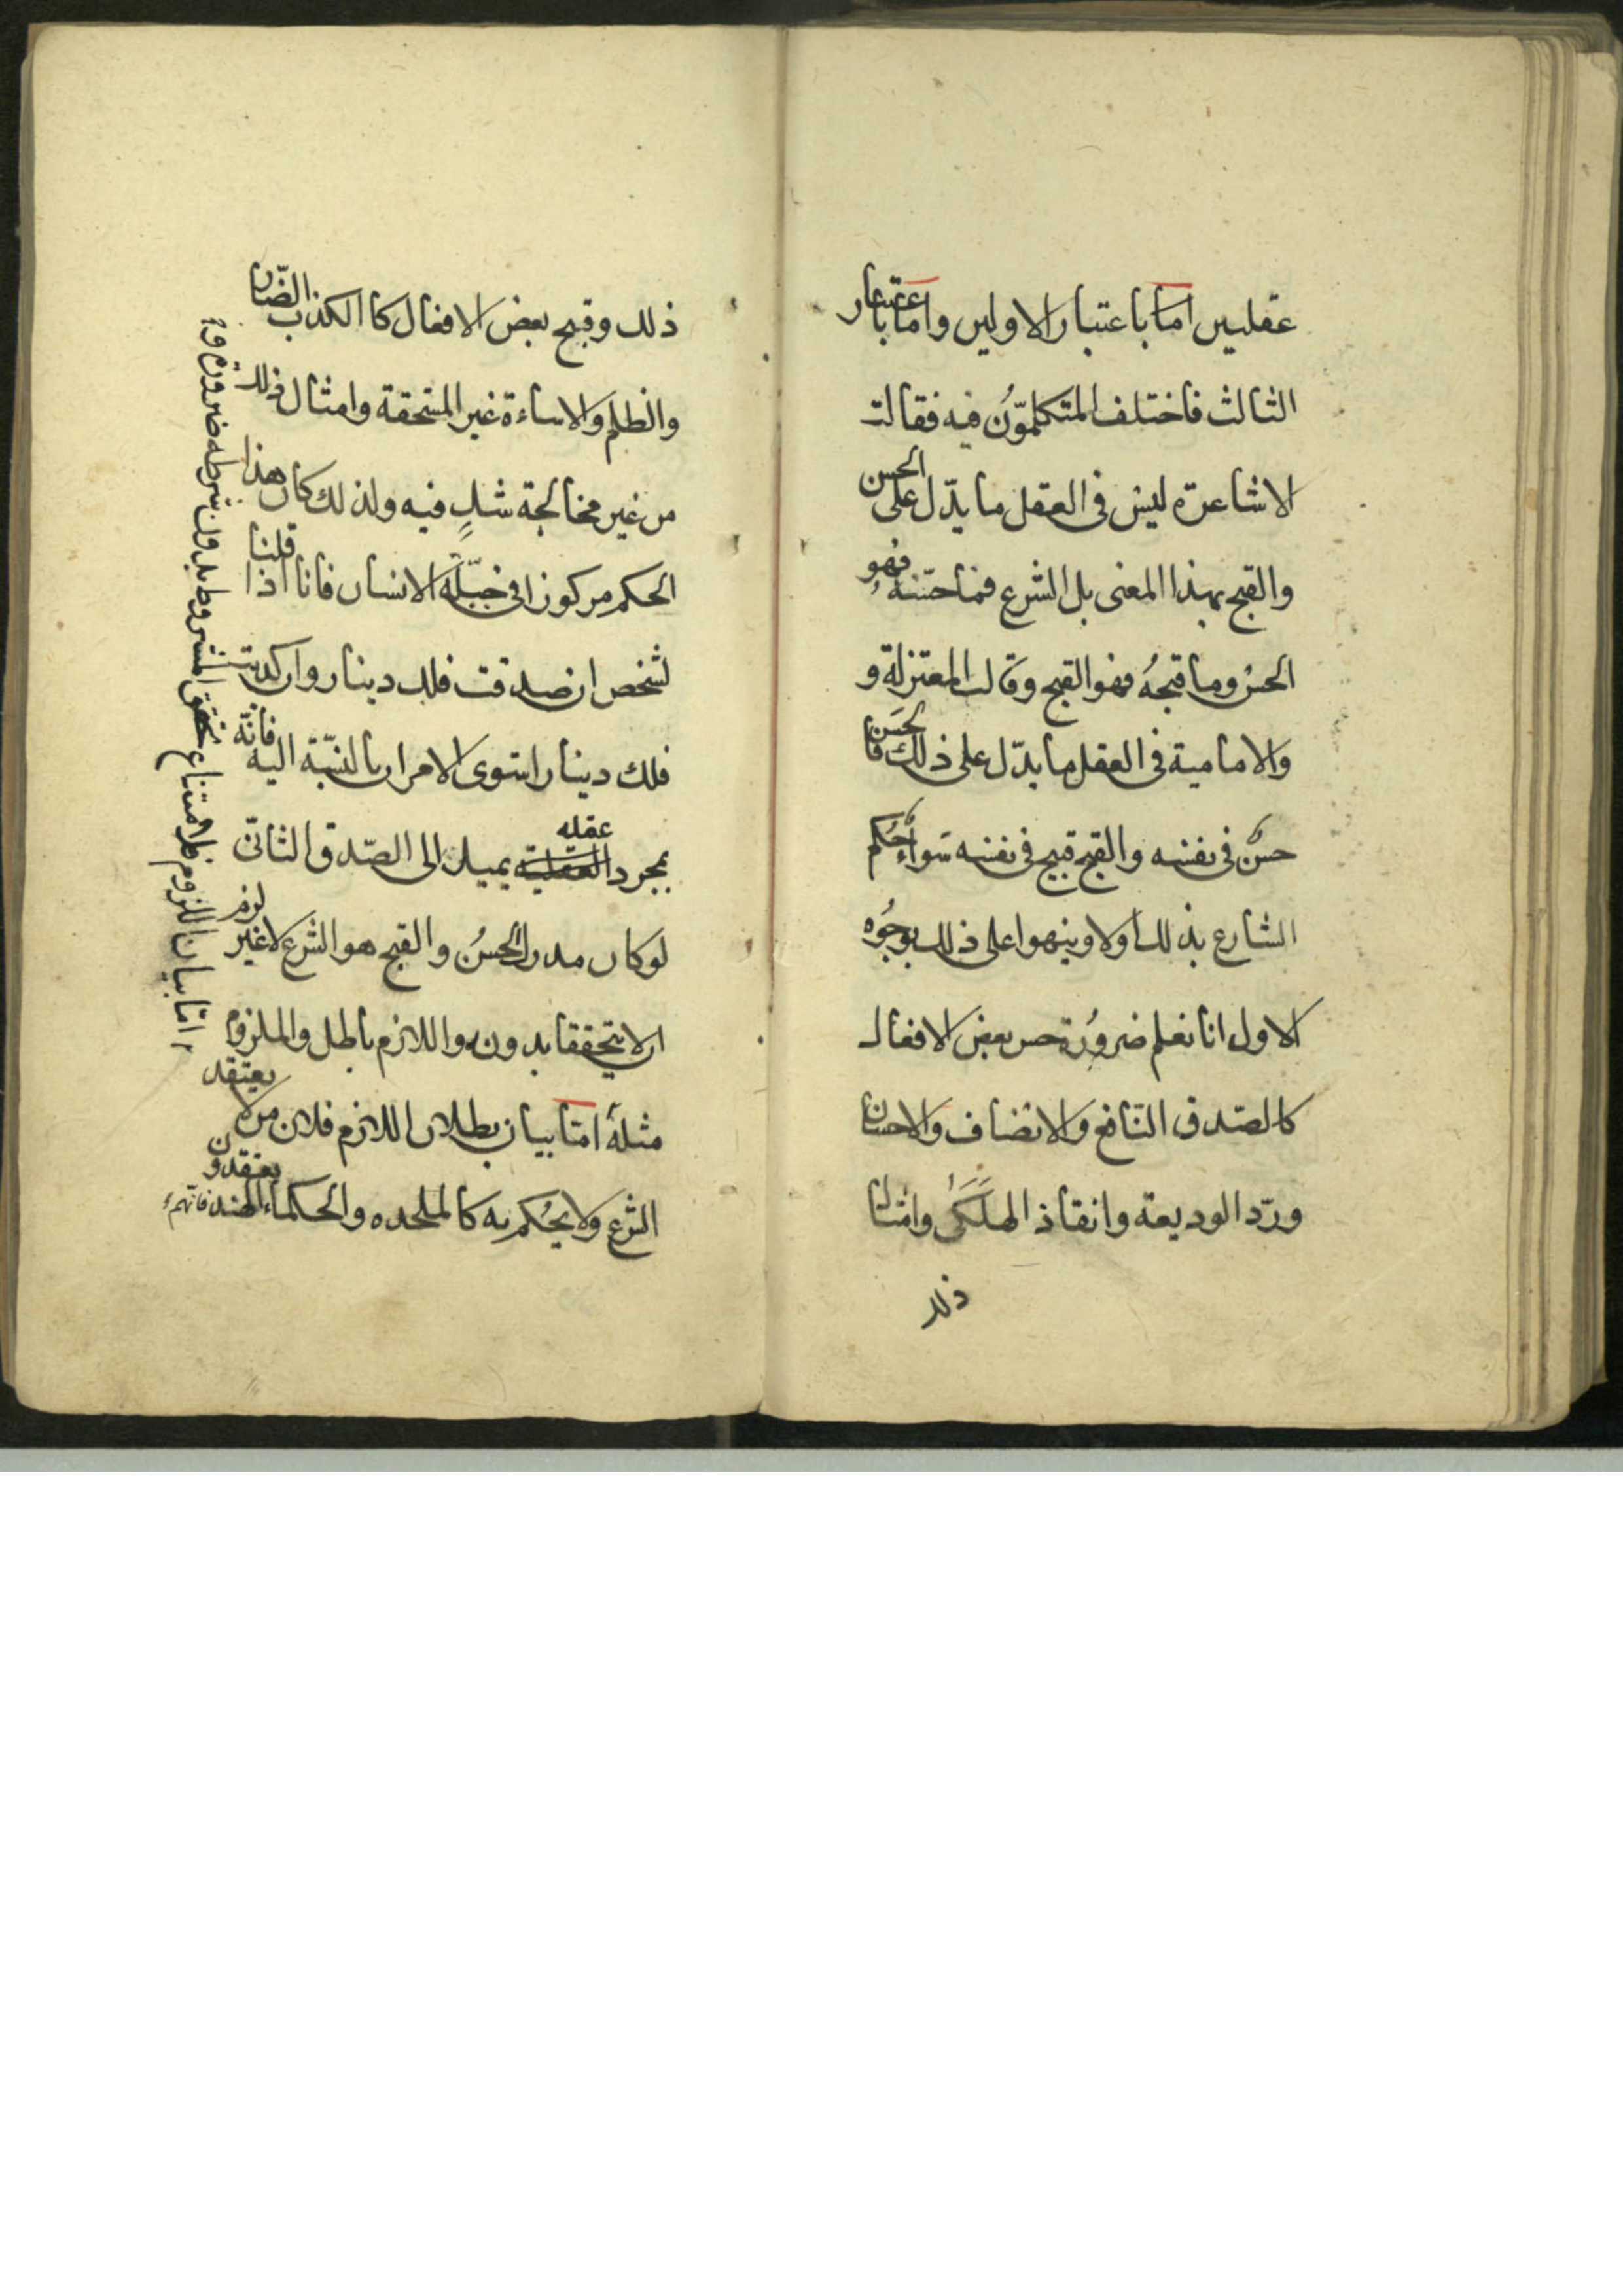 عقليين اما باعتبار الاولين واما باعتبار
الثالث فاختلف المتكلمّون فيه فقالت
الاشاعرة ليس في العقل ما يدّل على الحسن
والقبح بهذا المعنى بل الشرع فما حسّنه فهو
الحسن وما قبحهُ فهو القبح وقالت المعتزلة و
والامامية في العقل ما يدّل على ذلك فالحَسَن
حسنٌ في نفسه والقبح قبيح في نفسه سَواءٌ حُكم
الشارع بذلك اولا وينهوا على ذلك بوجُوه
الاول انا نعلم ضروُرة حسن بعض الافعال
كالصّدق النّافع والانصاف والاحسان
وردّ الوديعة وانقاذ الهَلَكىُ وامثال
ذلك
ذلك وقبح بعض الافعال كا الكذب الضّار
والظلم والاساءة غير المستحقة وامثال ذلك
من غير مخالجة شكٍ فيه ولذلك كان هذا
الحكم مركوزا في جبلّة الانسان فانا اذا قلنا
لشخص ان صدقت فلك دينار وان كذبت
فلك دينار استوى الامران بالنسّبة اليه فانّه
بمجرد العقلية عقله يميل الى الصّدق الثانى
لو كان مدرك الحُسنُ والقبح هو الشرع لا غير لزم
ان لا يتحققا بدونه واللازم باطل والملزوم
مثله امّا بيان بطلان اللازم فلان من لا يعتقد
الشرع ولا يحُكم به كالملحده والحكماء الهند فانهم يعتقدون
امّا بيان اللزوم فلامتناع تحقق المشروط بدون شرطه ضرورة و